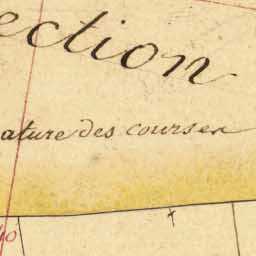 ection
ature des courses
40